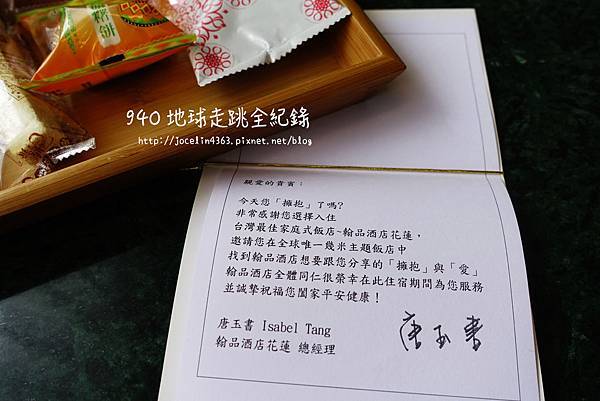 940 地球走跳全紀錄
http://jocelin4363.pixnet.net/blog
親愛的貴賓：
今天您「擁抱」了嗎?
非常感謝您選擇入住
台灣最佳家庭式飯店~翰品酒店花蓮，
邀請您在全球唯一幾米主題飯店中
找到翰品酒店想要跟您分享的「擁抱」與「愛」
翰品酒店全體同仁很榮幸在此住宿期間為您服務
並誠摯祝福您闔家平安健康！
唐玉書 Isabel Tang
翰品酒店花蓮 總經理
唐玉書